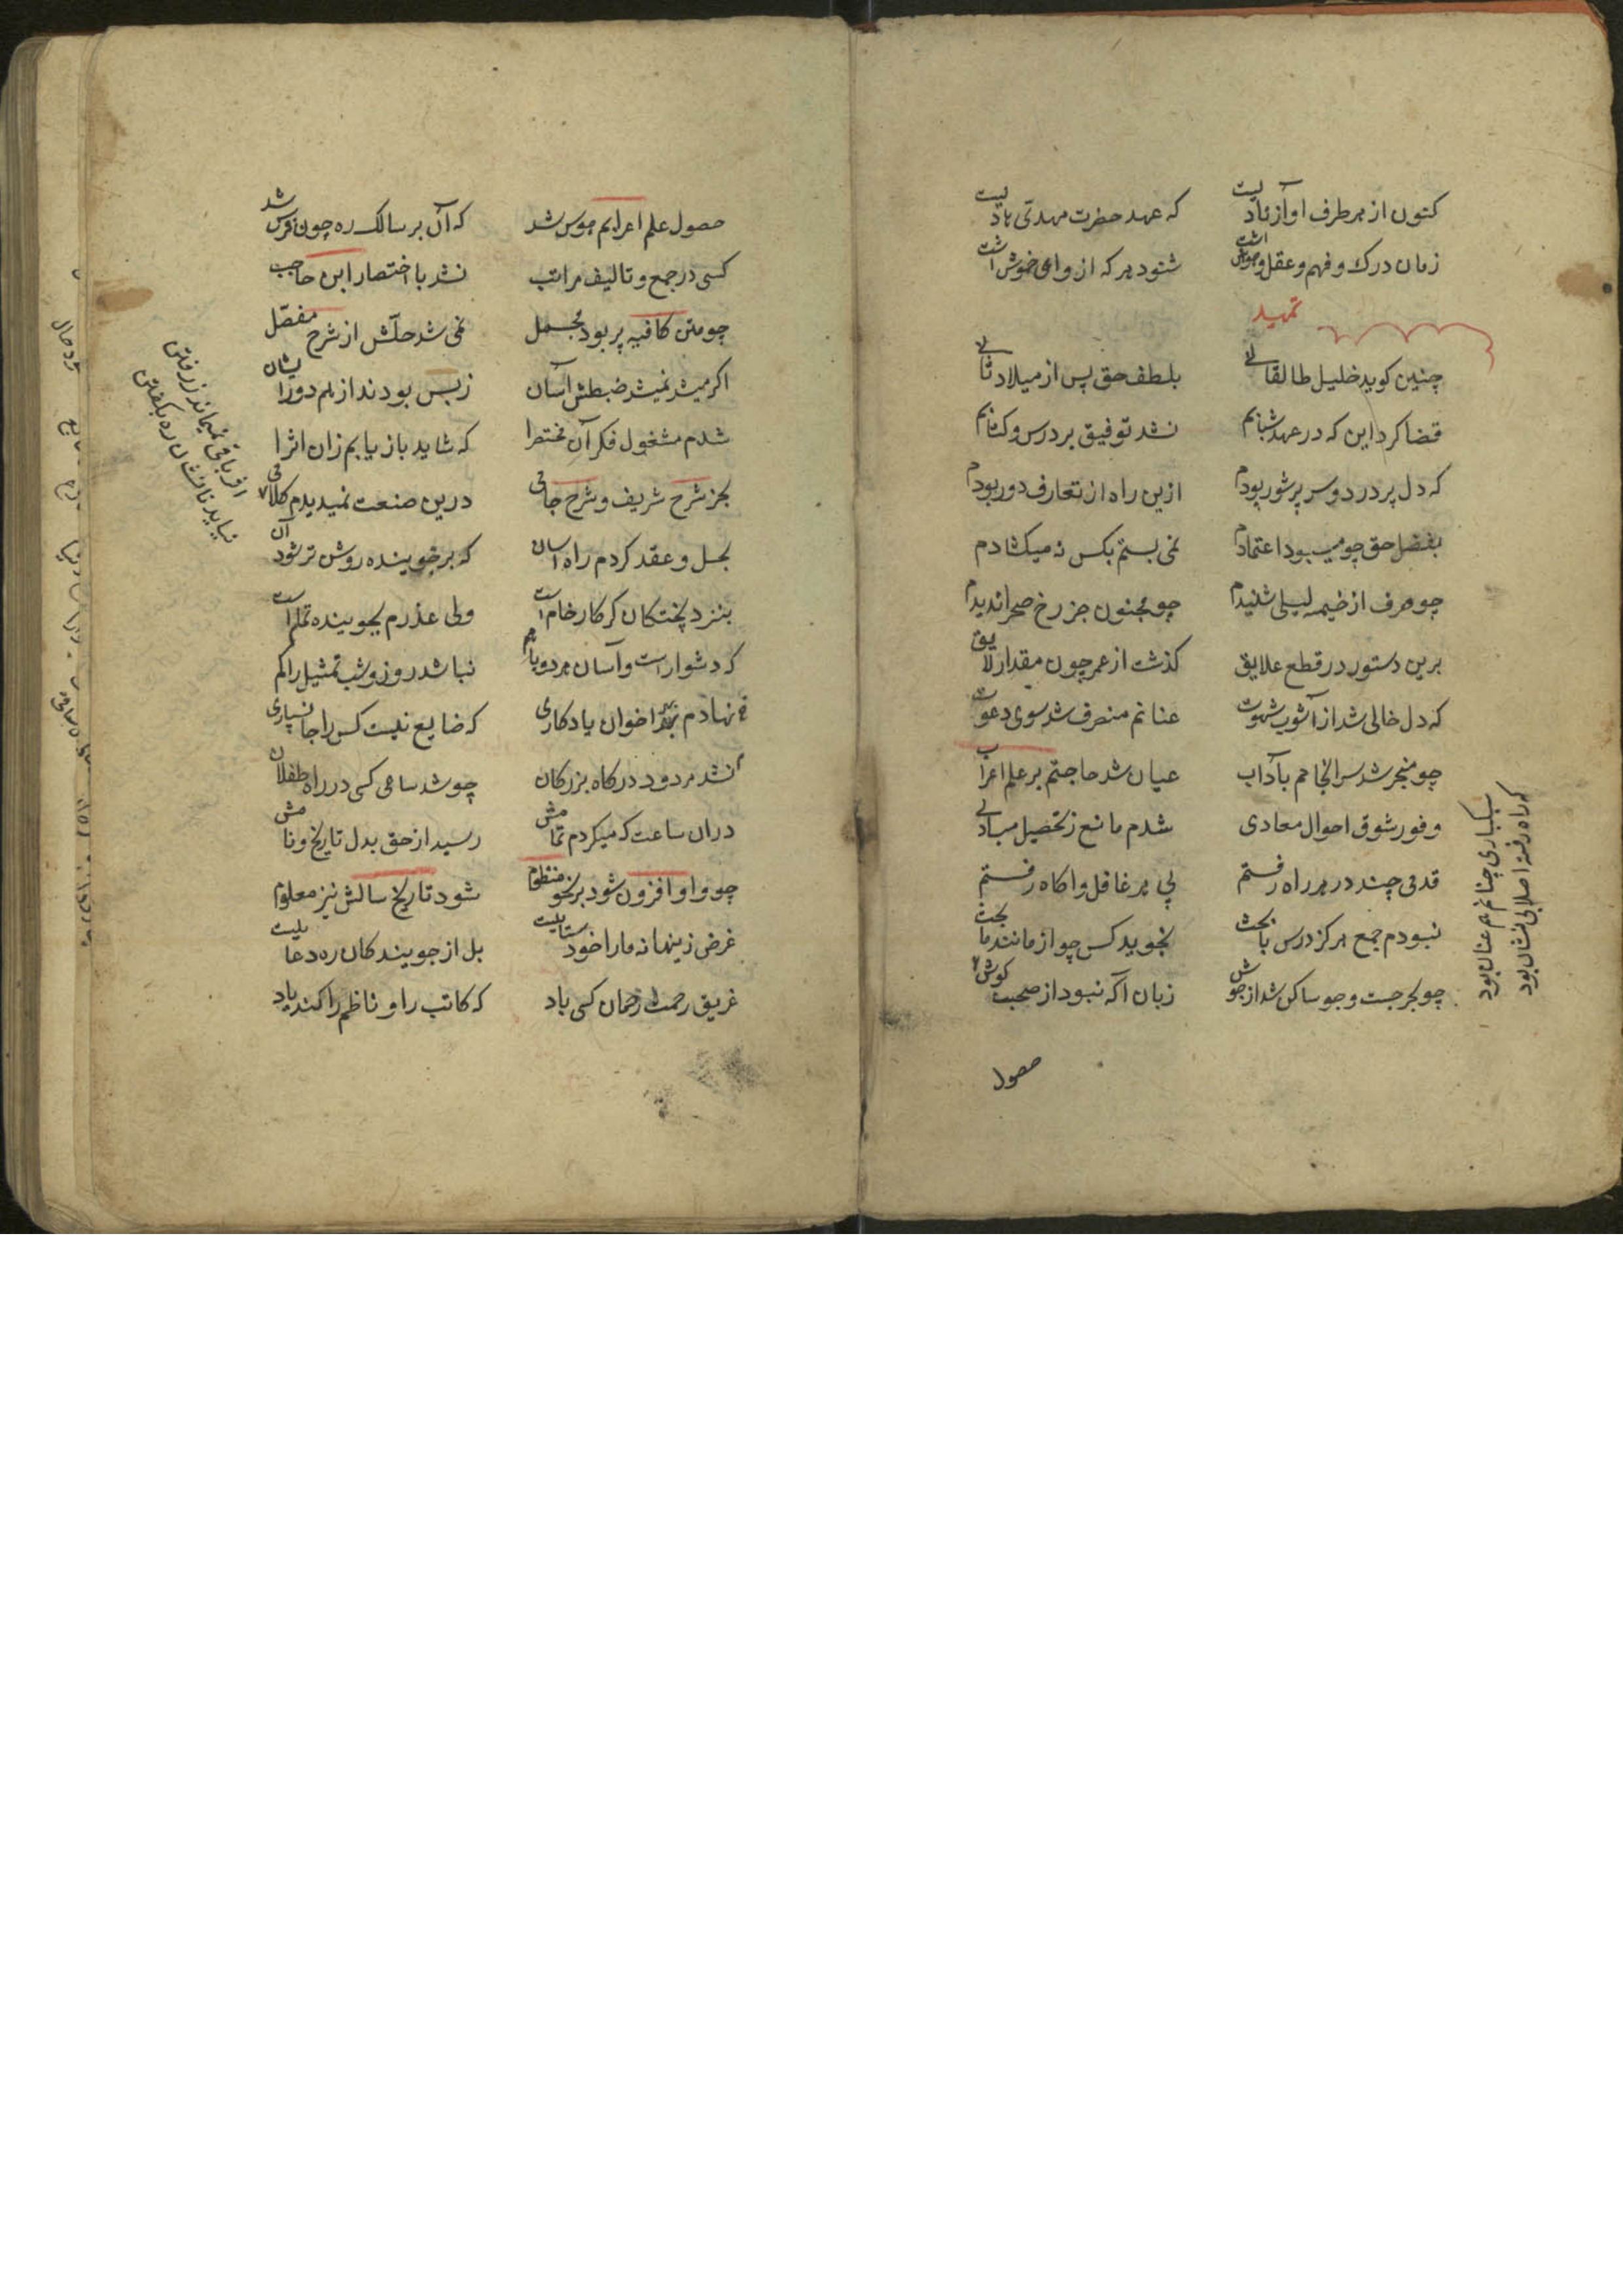 کنون از هر طرف آواز نادیست که عهد حضرت مهدی هادیست
زمان درک و فهم و عقل و هوش است شنود هر که از واعی خوش است
تمهید
چنین کوید خلیل طالقانی بلطف حق پس از میلاد ثانی
قضا کرد این که در عهد شبابم نشد توفیق بر درس و کتابم
که دل پر درد و سر پر شور بودم ازین راه از تعارف دور بودم
بفضل حق چو میبود اعتمادم نمی بستم بکس نه میکشادم
چو حرف از خیمه لیلی شنیدم چو مجنون جز رخ صحرا ندیدم
برین دستور در قطع علایق کذشت از عمر چون مقدار لایق
که دل خالی شد از آشوب شهوت عنانم منصرف شد سوی دعوت
چو منجر شد سرانجامم بآداب عیان شد حاجتم بر علم اعراب
وفور شوق احوال معادی شدم مانع ز تحصیل مبادی
قدمی چند در هر راه رفتم پی هر غافل و اکاه رفتم
نبودم جمع هرکز درس با بحث نجوید کس چو از مانند ما بحث
چو بحر جست و جو ساکن شد از جوش زبان آکه نبود از صحبت کوش
سبکباری چنانم هم عنان بود
که راه رفته اصلا بی نشان بود
حصول
حصول علم اعرابم هوس شد که آن بر سالک ره چون فرس شد
کسی در جمع و تالیف مراتب نشد با اختصار ابن حاجب
چو متن کافیه پر بود مجمل نمی شد حلش از شرح مفصل
اکر میشد نمیشد ضبطش آسان ز بس بودند از هم دور ایشان
شدم مشغول فکر آن مختصر را که شاید باز یابم زان اثر را
بجز شرح شریف و شرح جامی درین صنعت نمیدیدم کلامی
بحل و عقد کردم راه آسان که بر جوینده روشن تر شود آن
بنزد پختکان کر کار خام است ولی عذرم بجوینده تمام است
که دشوار است و آسان هر دو باهم نباشد روز و شب تمثیل را کم
نهادم بهر اخوان یادکاری که ضایع نیست کس را جانسپاری
نشد مردود درکاه بزرکان چو شد ساعی کسی در راه طفلان
دران ساعت که میکردم تمامش رسید از حق بدل تاریخ و نامش
چو واو افزون شود بر نحو منظوم شود تاریخ سالش نیز معلوم
غرض زینها نه ما را خودستاییست بل از جویندکان ره دعاییست
غریق رحمت رحمان کسی باد که کاتب را و ناظم را کند یاد
اثر باقی نمیماند ز رفتن
نیاید تا نشان ره بکفتن